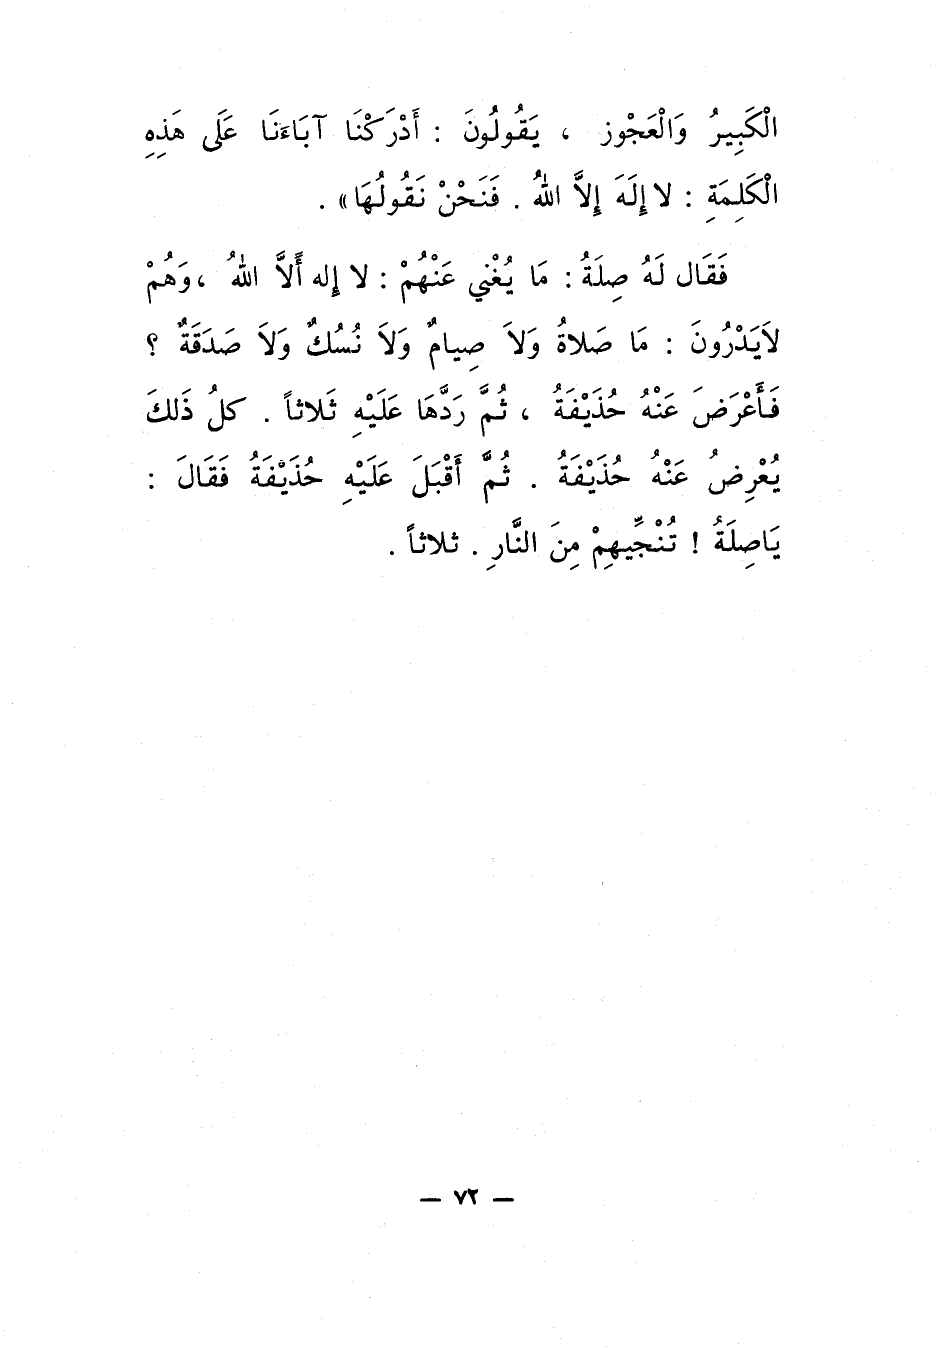 الْكَبِيرُ وَالْعَجْوز ، يَقُولُونَ : أَدْرَكْنَا آبَاءَنَا عَلَى هَذِهِ
الْكَلِمَةِ : لا إِلَهَ إِلاَّ اللهُ . فَنَحْنْ نَقُولُهَا» .
فَقَال لَهُ صِلَةُ : مَا يُغْنِي عَنْهُمْ : لا إله أَلاَّ اللهُ ، وَهُمْ
لاَيَدْرُونَ : مَا صَلاةُ وَلاَ صِيامٌ وَلاَ نُسُكٌ وَلاَ صَدَقَةٌ ؟
فَأَعْرَضَ عَنْهُ حُذَيْفَةُ ، ثُمَّ رَدَّهَا عَلَيْهِ ثَلاثاً . كلُ ذَلكَ
يُعْرِضُ عَنْهُ حُذَيْفَةُ . ثُمَّ أَقْبَلَ عَلَيْهِ حُذَيْفَةُ فَقَالَ :
يَاصِلَةُ ! تُنْجِّيهِمْ مِنَ النَّارِ . ثلاثاً .
— ٧٢ —